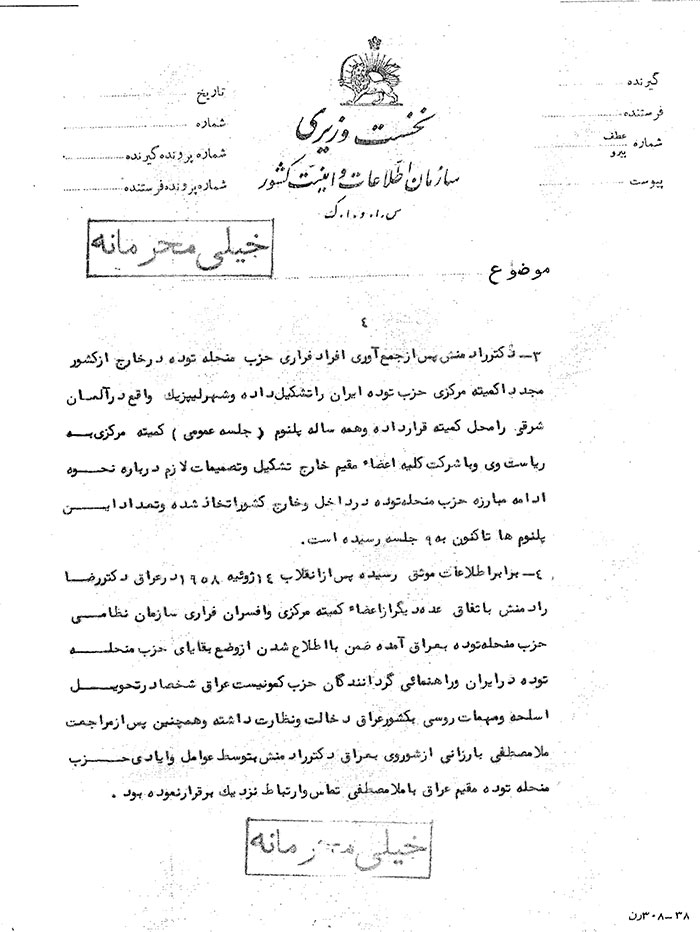 گیرنده
فرستنده
شماره عطف پیرو
پیوست
نخست وزیری
سازمان اطلاعات و امنیت کشور
س.ا.و.ا.ک
تاریخ
شماره
شماره پرونده گیرنده
شماره پرونده فرستنده
خیلی محرمانه
موضوع
٤
۳ــ دکتر رادمنش پس از جمع آوری افراد فراری حزب منحله توده در خارج از کشور
مجددا کمیته مرکزی حزب توده ایران را تشکیل داده و شهر لیپزیك واقع در آلمان
شرقی را محل کمیته قرار داده و همه ساله پلنوم ( جلسه عمومی ) کمیته مرکزی به
ریاست وی و با شرکت کلیه اعضاء مقیم خارج تشکیل و تصمیمات لازم درباره نحوه
ادامه مبارزه حزب منحله توده در داخل و خارج کشور اتخاذ شده و تعداد این
پلنوم ها تاکنون به ۹ جلسه رسیده است.
٤ــ برابر اطلاعات موثق رسیده پس از انقلاب ۱٤ ژوئیه ۱۹۵۸ در عراق دکتر رضا
رادمنش باتفاق عده دیگر از اعضاء کمیته مرکزی و افسران فراری سازمان نظامی
حزب منحله توده بعراق آمده ضمن با اطلاع شدن از وضع بقایای حزب منحله
توده در ایران و راهنمائی گردانندگان حزب کمونیست عراق شخصا در تحویل
اسلحه و مهمات روسی بکشور عراق دخالت و نظارت داشته و همچنین پس از مراجعت
ملا مصطفی بارزانی از شوروی بعراق دکتر رادمنش بتوسط عوامل و ایادی حزب
منحله توده مقیم عراق با ملا مصطفی تماس و ارتباط نزدیك برقرار نموده بود .
خیلی محرمانه
۳۸ــ۳۰۸رن